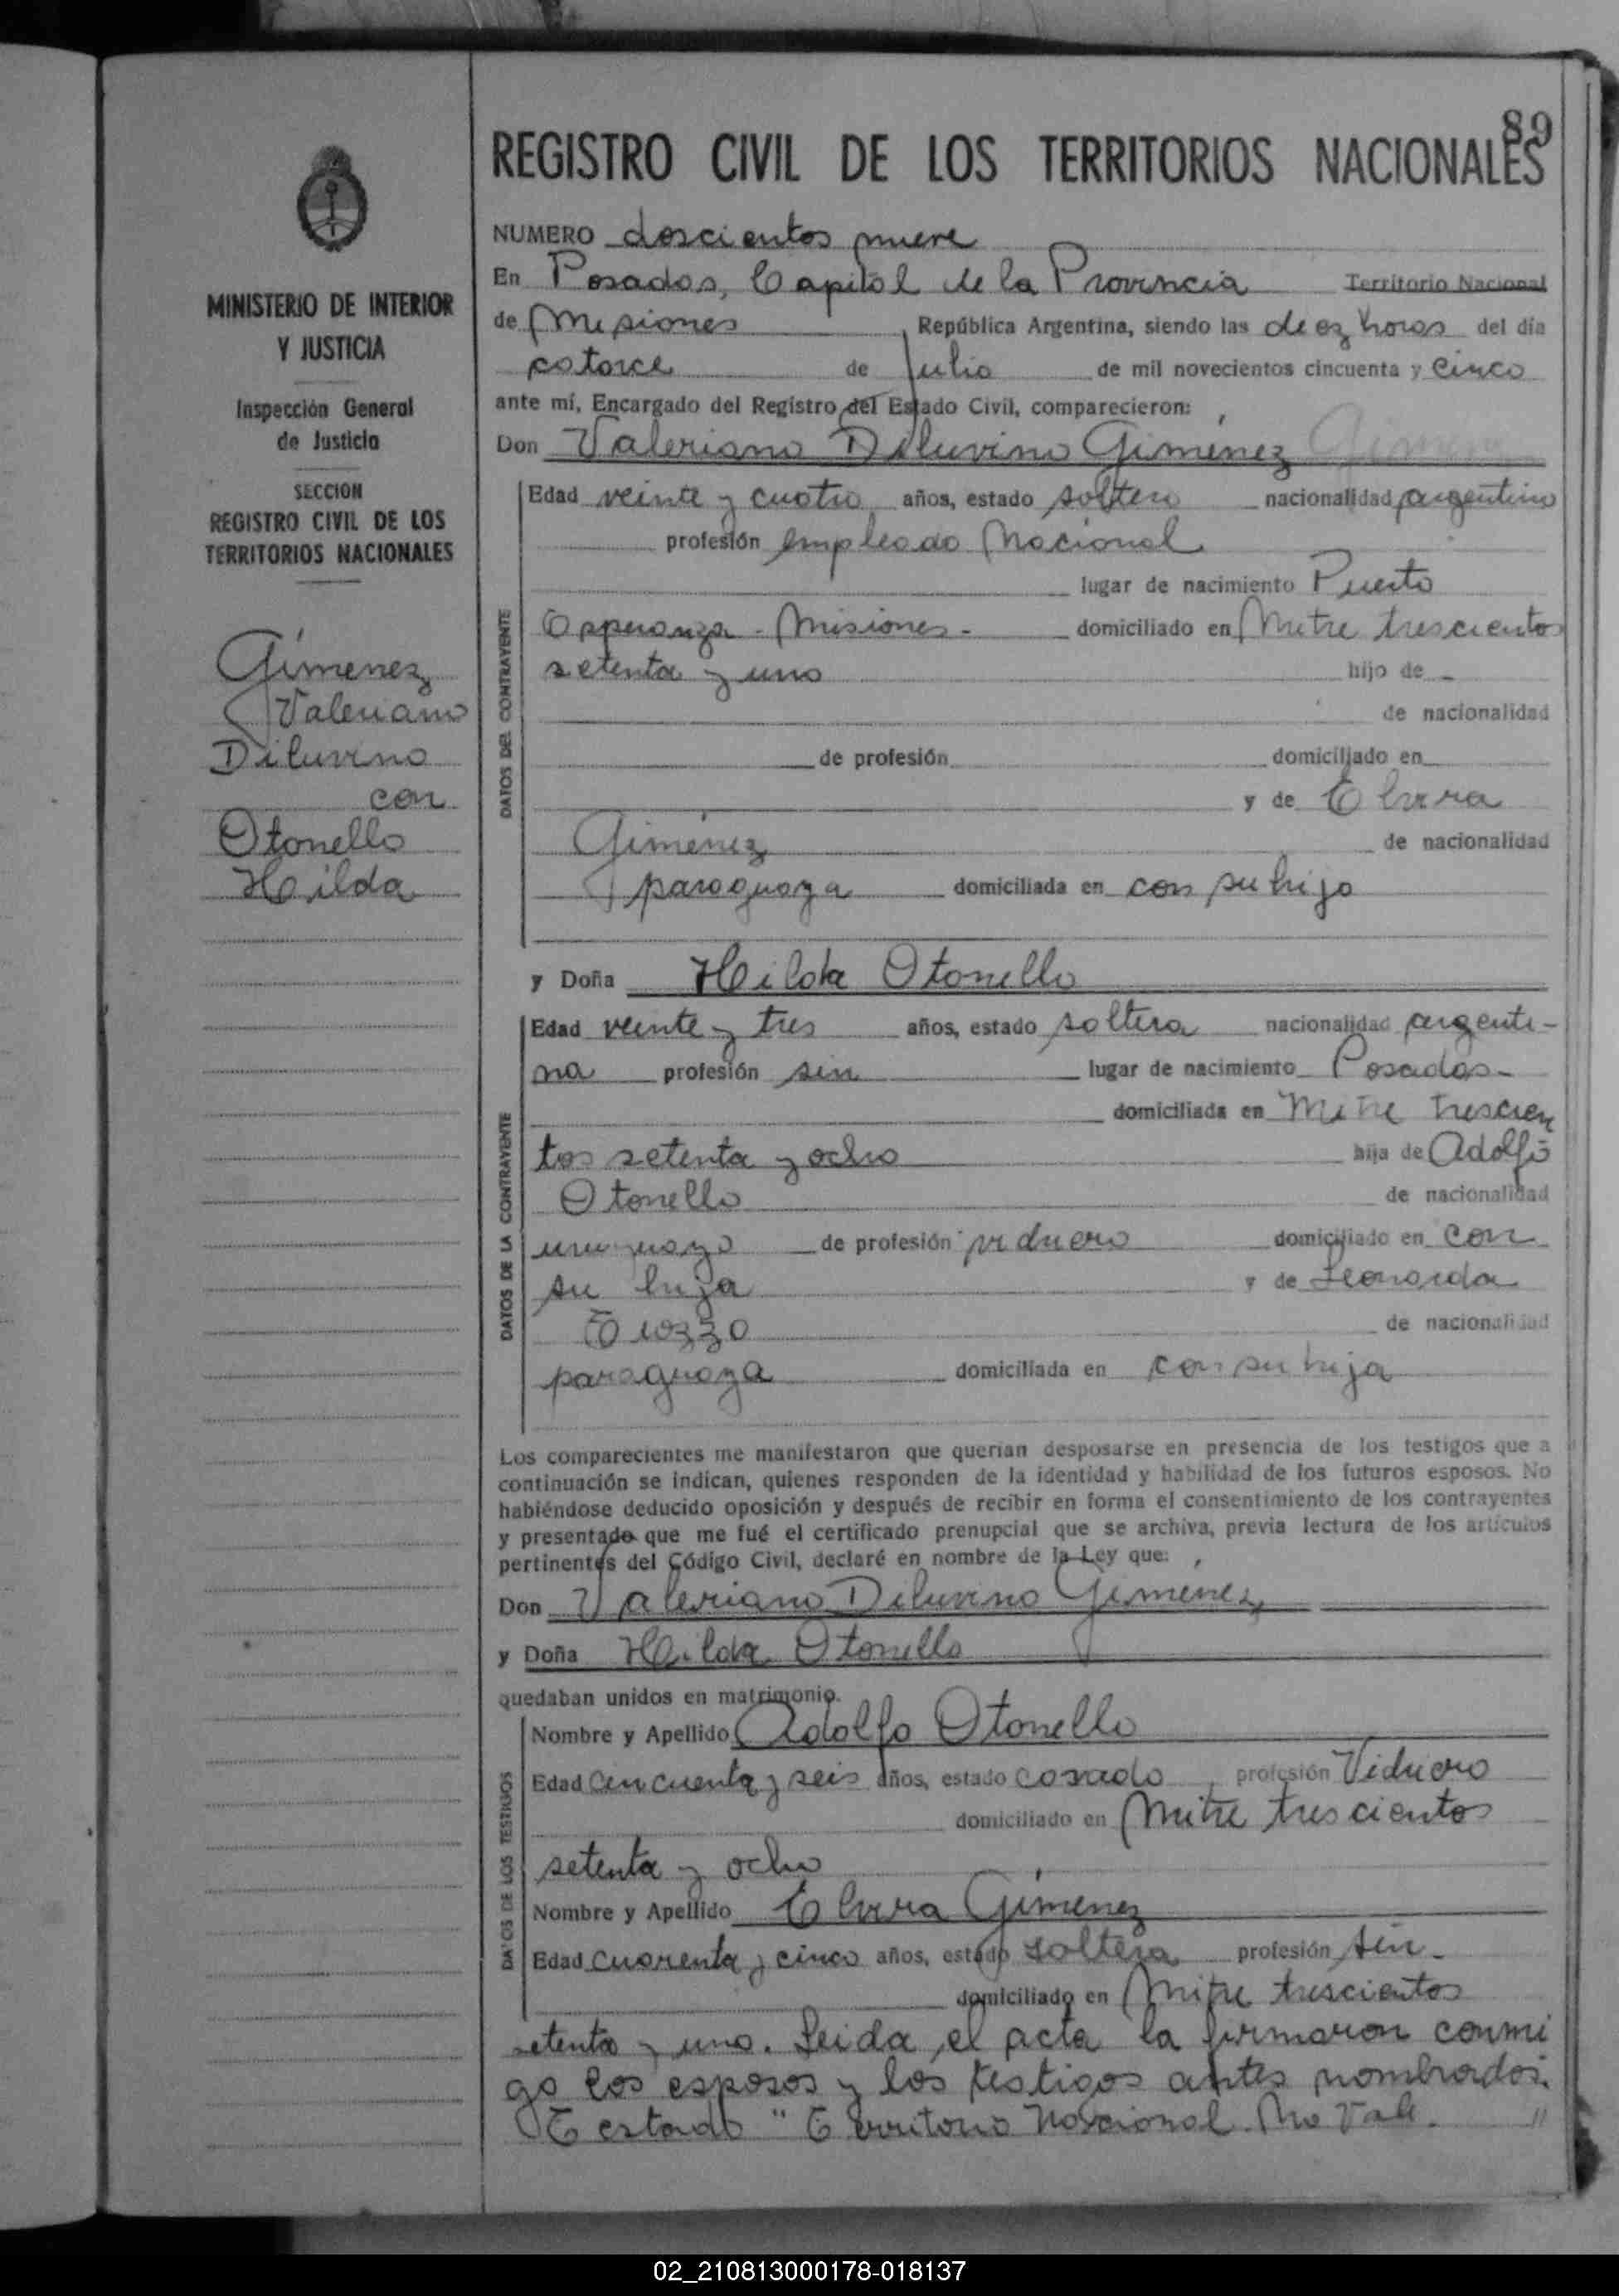 89
REGISTRO CIVIL DE LOS TERRITORIOS NACIONALES
MINISTERIO DE INTERIOR
Y JUSTICIA
Inspección General
de Justicia
SECCION
REGISTRO CIVIL DE LOS
TERRITORIOS NACIONALES
Gímenez
Valeriano
Diluvino
con
Otonello
Hilda
NUMERO doscientos nueve
En Posadas, Capital de la Provincia Territorio Nacional
de Misiones, República Argentina, siendo las diez horas del día
catorce de Julio de mil novecientos cincuenta y cinco
ante mí, Encargado del Registro del Estado Civil, comparecieron:
Don Valeriano Diluvino Giménez
DATOS DEL CONTRAYENTE
Edad veinte y cuatro años, estado soltero nacionalidad argentino
profesión empleado Nacional
lugar de nacimiento Puerto
Esperanza - Misiones - domiciliado en Mitre trescientos
setenta y uno hijo de -
de nacionalidad
de profesión domiciliado en
y de Elvira
Giménez de nacionalidad
paraguaya domiciliada en con su hijo
y Doña Hilda Otonello
DATOS DE LA CONTRAYENTE
Edad veinte y tres años, estado soltera nacionalidad argenti-
na profesión sin lugar de nacimiento Posadas-
domiciliada en Mitre trescien
tos setenta y ocho hija de Adolfo
Otonello de nacionalidad
uruguayo de profesión vidriero domiciliado en con
su hija y de Leonarda
de nacionalidad
paraguaya domiciliada en con su hija
Los comparecientes me manifestaron que querían desposarse en presencia de los testigos que a
continuación se indican, quienes responden de la identidad y habilidad de los futuros esposos. No
habiéndose deducido oposición y después de recibir en forma el consentimiento de los contrayentes
y presentado que me fué el certificado prenupcial que se archiva, previa lectura de los artículos
pertinentes del Código Civil, declaré en nombre de la Ley que:
Don Valeriano Diluvino Giménez
y Doña Hilda Otonello
quedaban unidos en matrimonio.
DATOS DE LOS TESTIGOS
Nombre y Apellido Adolfo Otonello
Edad cincuenta y seis años, estado casado, profesión Vidriero
domiciliado en Mitre trescientos
setenta y ocho
Nombre y Apellido Elvira Gímenez
Edad cuarenta y cinco años, estado soltera profesión sin -
domiciliado en Mitre trescientos
setenta y uno. Leida el acta la firmaron conmi
go los esposos y los testigos antes nombrados.
Testado "Territorio Nacional No Vale. "
02_210813000178-018137